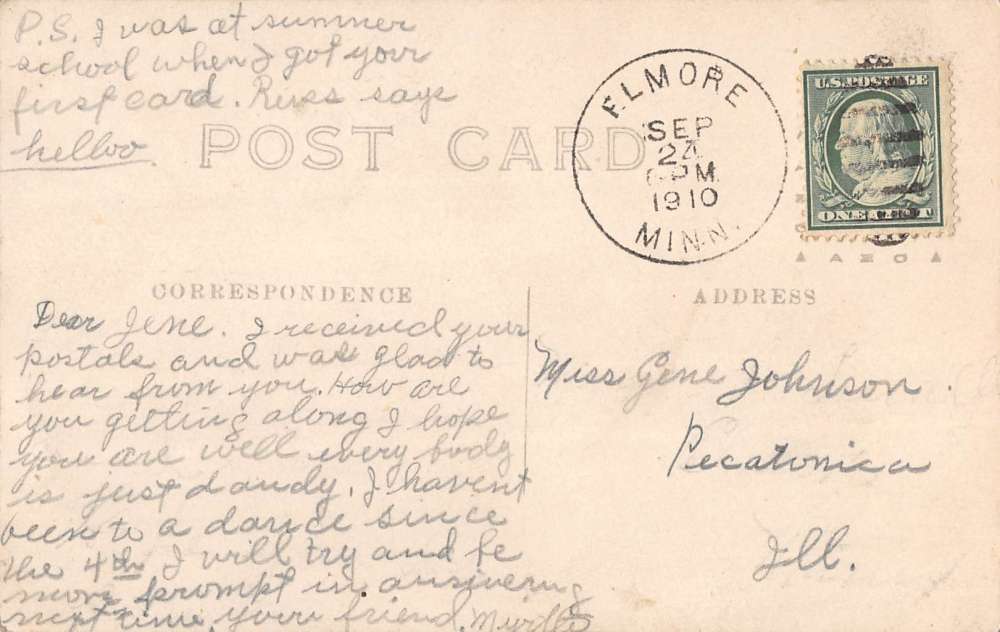 P.S. I was at summer
school when I got your
first card. Russ says
helloo
POST CARD
ELMORE
SEP
24
6 PM
1910
MINN.
U.S. POSTAGE
ONE CENT
AZO
CORRESPONDENCE
Dear Jene. I received your
postals and was glad to
hear from you. How are
you getting along I hope
you are well every body
is just dandy. I havent
been to a dance since
the 4th I will try and be
more prompt in answering
next time. your friend. Myrtle
ADDRESS
Miss Gene Johnson.
Pecatonica
Ill.